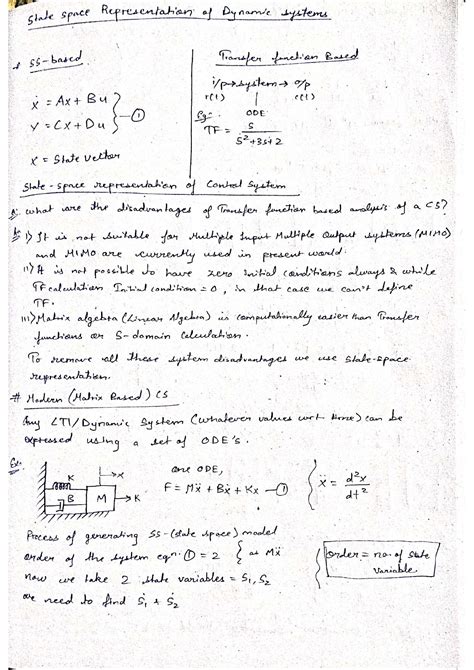 State space Representation of Dynamic Systems
SS-based
ẋ = Ax + Bu
Y = Cx + Du } - ①
x = State Vector
Transfer function Based
i/p → system → o/p
r(t) | c(t)
Eg:- ODE
TF = S / S²+3S+2
State-space representation of Control System
Q: what are the disadvantages of Transfer function based analysis of a CS?
i) It is not suitable for Multiple Input Multiple Output systems (MIMO)
and MIMO are currently used in present world.
ii) It is not possible to have zero initial conditions always & while
TF calculation Initial condition = 0, in that case we can't define
TF.
iii) Matrix algebra (Linear Algebra) is computationally easier than Transfer
functions or S-domain calculation.
To remove all these system disadvantages we use state-space
representation.
# Modern (Matrix Based) CS
Any LTI/Dynamic System (whatever values wrt time) can be
expressed using a set of ODE's.
Ex:-
→x
K
B
M
→K
one ODE,
F = Mẍ + Bẋ + Kx - ①
ẍ = d²x / dt²
Process of generating SS-(state space) model
order of the system eqn. ① = 2 { as Mẍ
now we take 2 state variables = S₁, S₂
we need to find Ṡ₁ & Ṡ₂
Order = no. of State
Variable